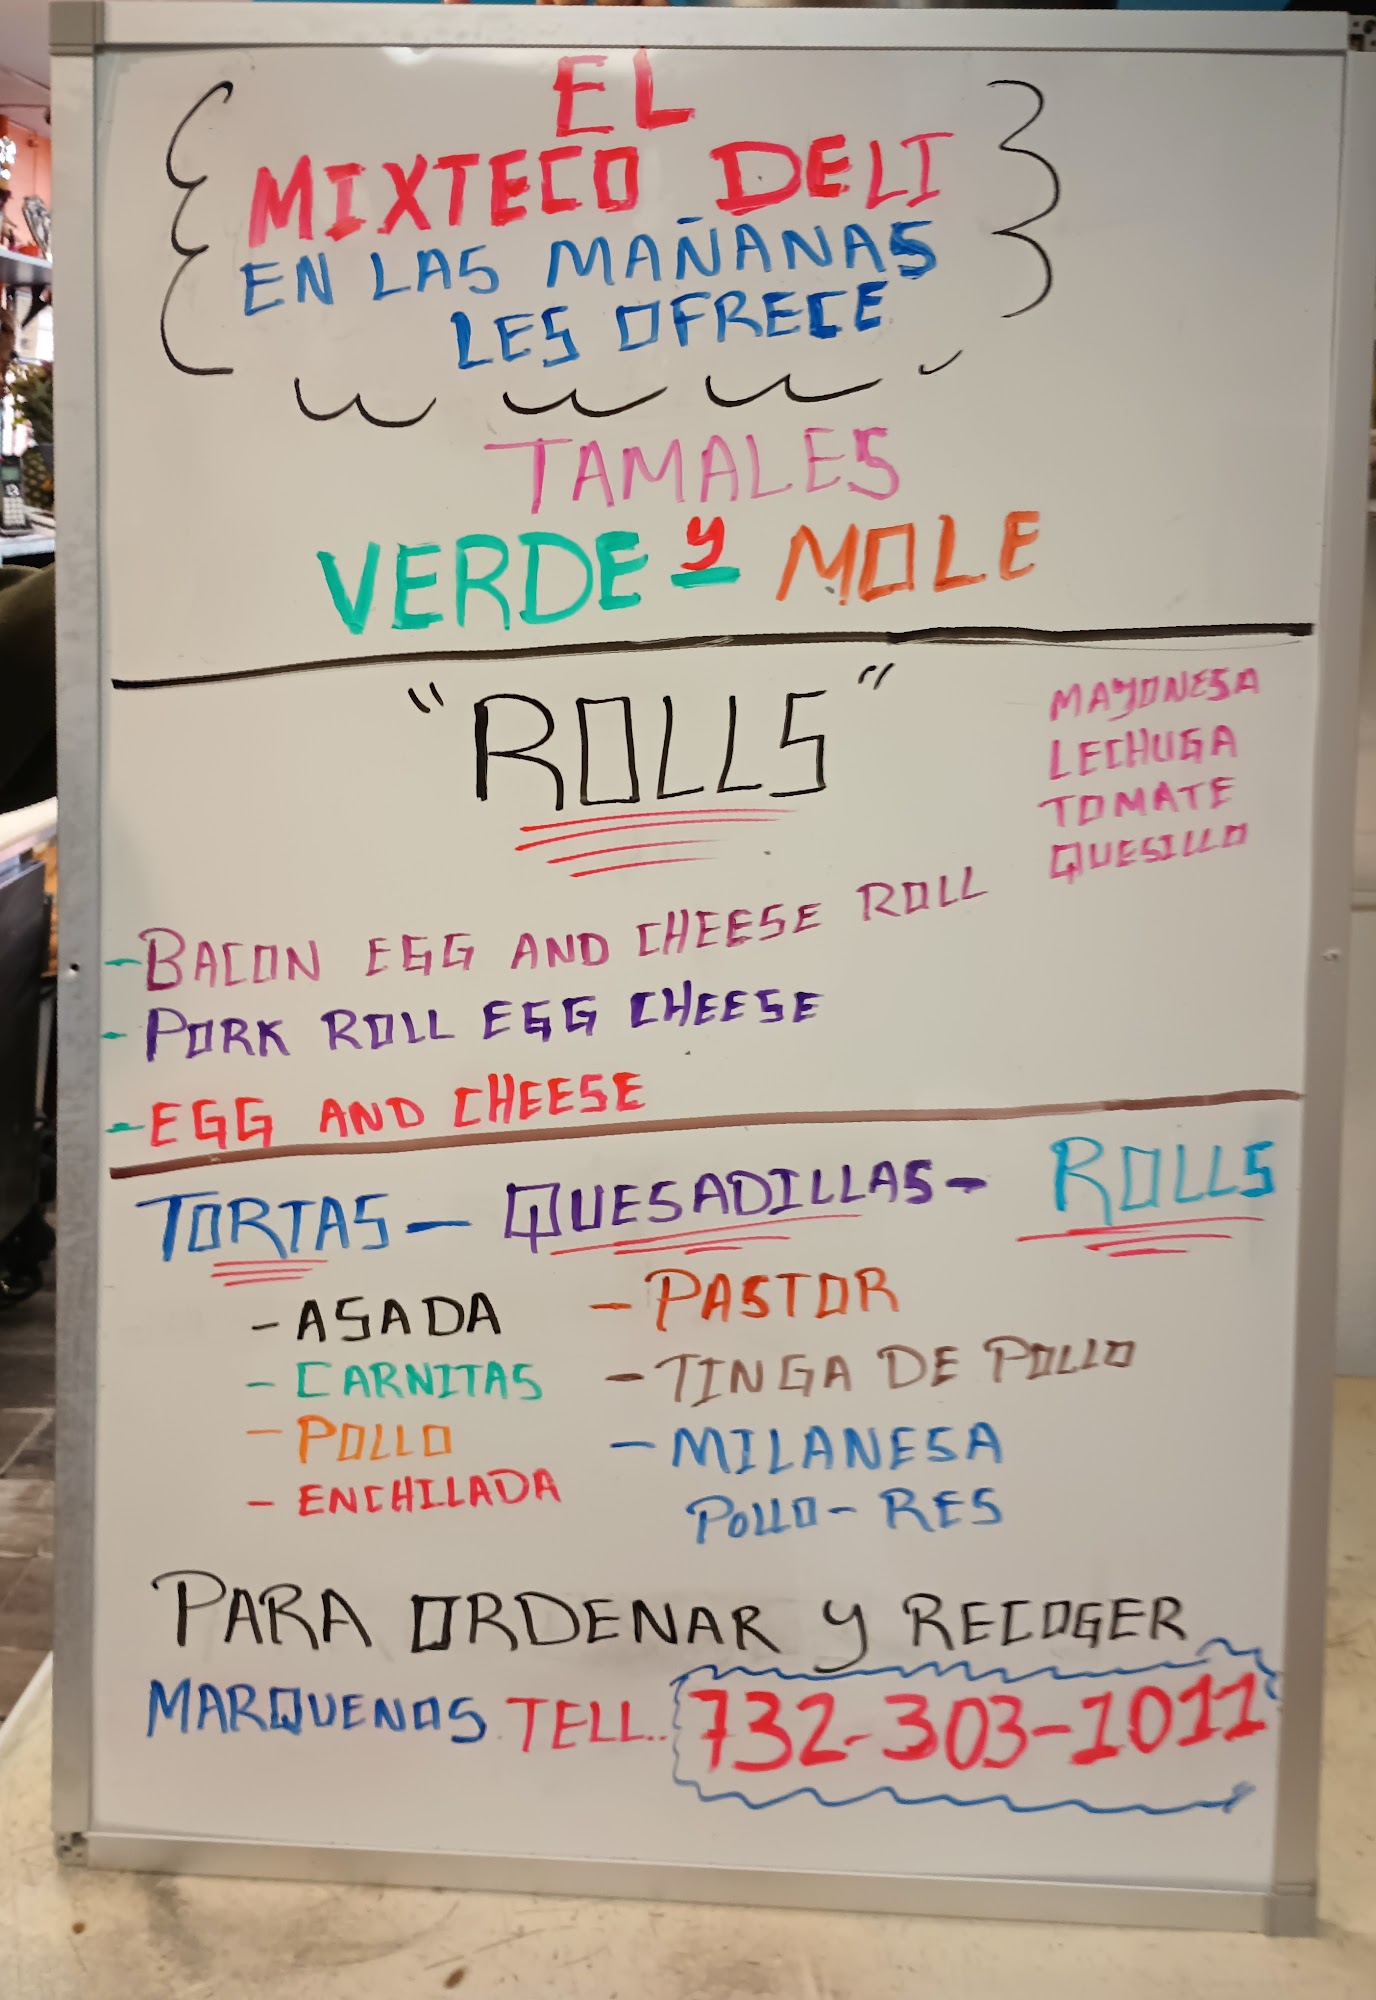 EL
MIXTECO DELI
EN LAS MAÑANAS
LES OFRECE
TAMALES
VERDE y MOLE
"ROLLS"
MAYONESA
LECHUGA
TOMATE
QUESILLO
- BACON EGG AND CHEESE ROLL
- PORK ROLL EGG CHEESE
- EGG AND CHEESE
TORTAS - QUESADILLAS - ROLLS
- ASADA
- CARNITAS
- POLLO
- ENCHILADA
- PASTOR
- TINGA DE POLLO
- MILANESA
POLLO - RES
PARA ORDENAR y RECOGER
MARQUENOS TELL.. 732-303-1011